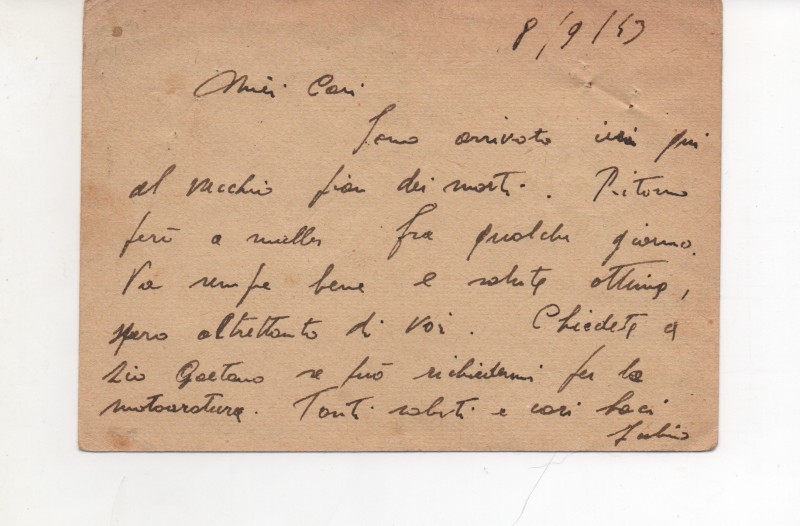 8/9/43
Miei Cari
Sono arrivato ieri qui
al vecchio pian dei morti. Ritorno
però a mulles fra qualche giorno.
Va sempre bene e salute ottima,
spero altrettanto di voi. Chiedete a
Zio Gaetano se può richiedermi per la
motoaratura. Tanti saluti e cari baci